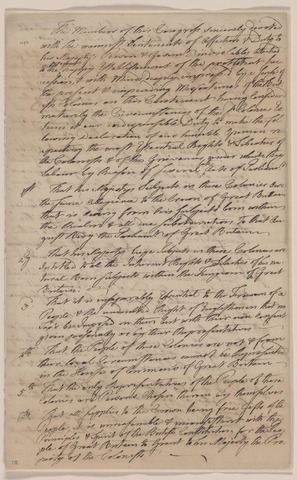 The Members of this Congress sincerely devoted
with the warmest Sentiments of Affection & Duty to
his Majesty's Person & Government inviolably attached
to the happy Establishment of the protestant Suc
cession, & with Minds deeply impressed by a Sense of
the present & impending Misfortunes of the British
Colonies on this Continent having considered
maturely the Circumstances of the Colonies Es
teem it our indispensable Duty to make the fol
lowing Declaration of our humble Opinion re
specting the most Essential Rights & Liberties of
the Colonists & of the Grievances under which they
Labour by Reason of several Acts of Parliament
1st That his Majestys Subjects in these Colonies owe
the same Allegiance to the Crown of Great Britain
that is owing from his Subjects born within
the Realm & all due subordination to that au
gust Body the Parliament of Great Britain
2d That his Majestys Liege Subjects in these Colonies are
Entitled to all the Inherent Rights & Liberties of his na
tural born Subjects within the Kingdom of Great
Britain
3 That it is inseparably Essential to the Freedom of a
People, & the undoubted Right of Englishmen that no
Taxes be Imposed on them but with their own consent
given personally or by their Representatives
4th That the People of these Colonies are not & from
their Local Circumstances cannot be Represented
in the House of Commons of Great Britain
5th That the only Representatives of the People of these
Colonies are Persons chosen therein by themselves
That all supplies to the Crown being free Gifts of the
People, it is unreasonable & inconsistent with the
Principles & Spirit of the British Constitution for the Peo
ple of Great Britain to Grant to his Majesty the Pro
perty of the Colonists